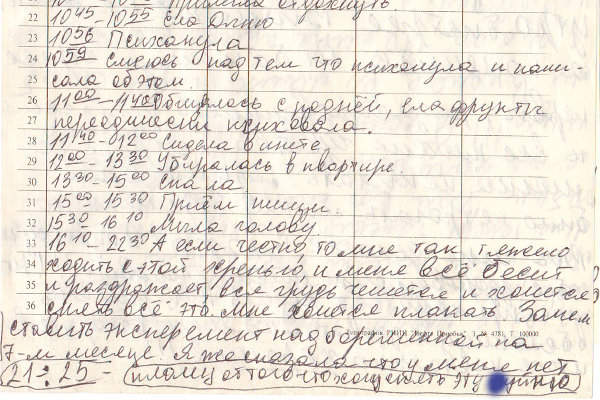 прилегла отдохнуть.
22 10 45 - 10 55 Ела Дыню
23 10 56 Психанула
24 10 59 смеюсь над тем что психанула и напи-
25 сала об этом.
26 11 00 - 11 40 Общалась с родней, ела фрукты
27 переодически психовала.
28 11 40 - 12 00 Сидела в инете
29 12 00 - 13 30 Убиралась в квартире.
30 13 30 - 15 00 Спала
31 15 00 - 15 30 Приём пищи
32 15 30 - 16 10 Мыла голову
33 16 10 - 22 30 А если честно, то мне так тяжело
34 ходить с этой хренью, и меня всё бесит
35 и раздражает, вся грудь чешется и хочется
36 снять всё это. Мне хочется плакать Зачем
ставить эксперемент над беременной на
7-м месяце. Я же сказала что у меня нет
21:25 - (плачу от того что хочу снять эту